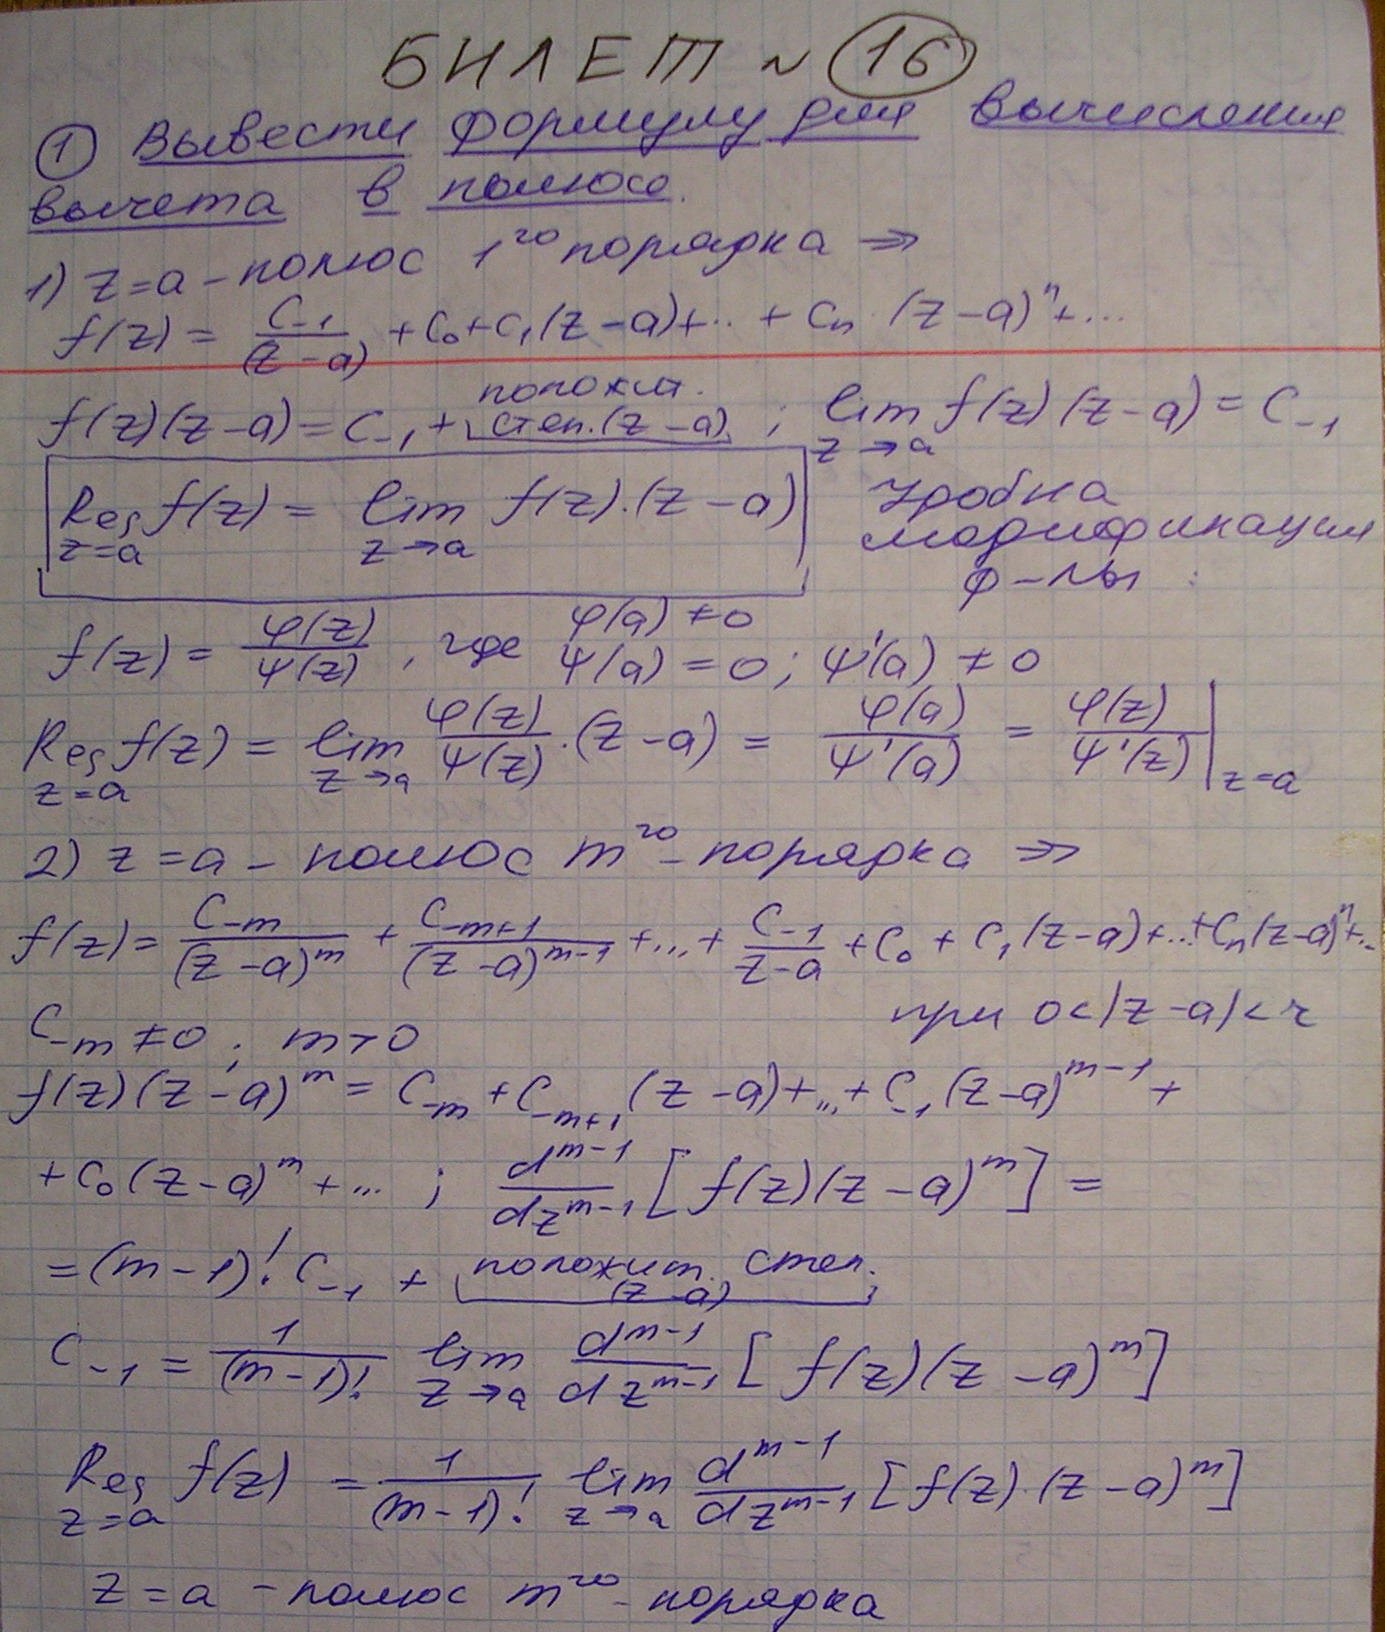 БИЛЕТ N 16
① Вывести формулу для вычисления
вычета в полюсе.
1) z=a – полюс 1го порядка ⇒
f(z) = C₋₁/(z-a) + C₀+C₁(z-a)+...+ Cₙ·(z-a)ⁿ+...
f(z)(z-a) = C₋₁ + положит. степ.(z-a) ; lim_{z→a} f(z)(z-a) = C₋₁
Res_{z=a} f(z) = lim_{z→a} f(z)·(z-a)
модификация
ф-лы :
f(z) = φ(z)/ψ(z) , где φ(a) ≠ 0 ψ(a) = 0; ψ'(a) ≠ 0
Res_{z=a} f(z) = lim_{z→a} φ(z)/ψ(z)·(z-a) = φ(a)/ψ'(a) = φ(z)/ψ'(z)|_{z=a}
2) z=a – полюс mго – порядка ⇒
f(z) = C₋ₘ/(z-a)^m + C₋ₘ₊₁/(z-a)^{m-1} +...+ C₋₁/(z-a) + C₀ + C₁(z-a)+...+Cₙ(z-a)ⁿ+...
при 0<|z-a|<r
C₋ₘ≠0 ; m>0
f(z)(z-a)^m = C₋ₘ + C₋ₘ₊₁(z-a)+...+ C₋₁(z-a)^{m-1} +
+ C₀(z-a)^m + ... ; d^{m-1}/dz^{m-1} [f(z)(z-a)^m] =
= (m-1)! C₋₁ + положит. степ. (z-a)
C₋₁ = 1/(m-1)! lim_{z→a} d^{m-1}/dz^{m-1} [f(z)(z-a)^m]
Res_{z=a} f(z) = 1/(m-1)! lim_{z→a} d^{m-1}/dz^{m-1} [f(z)·(z-a)^m]
z=a – полюс mго – порядка